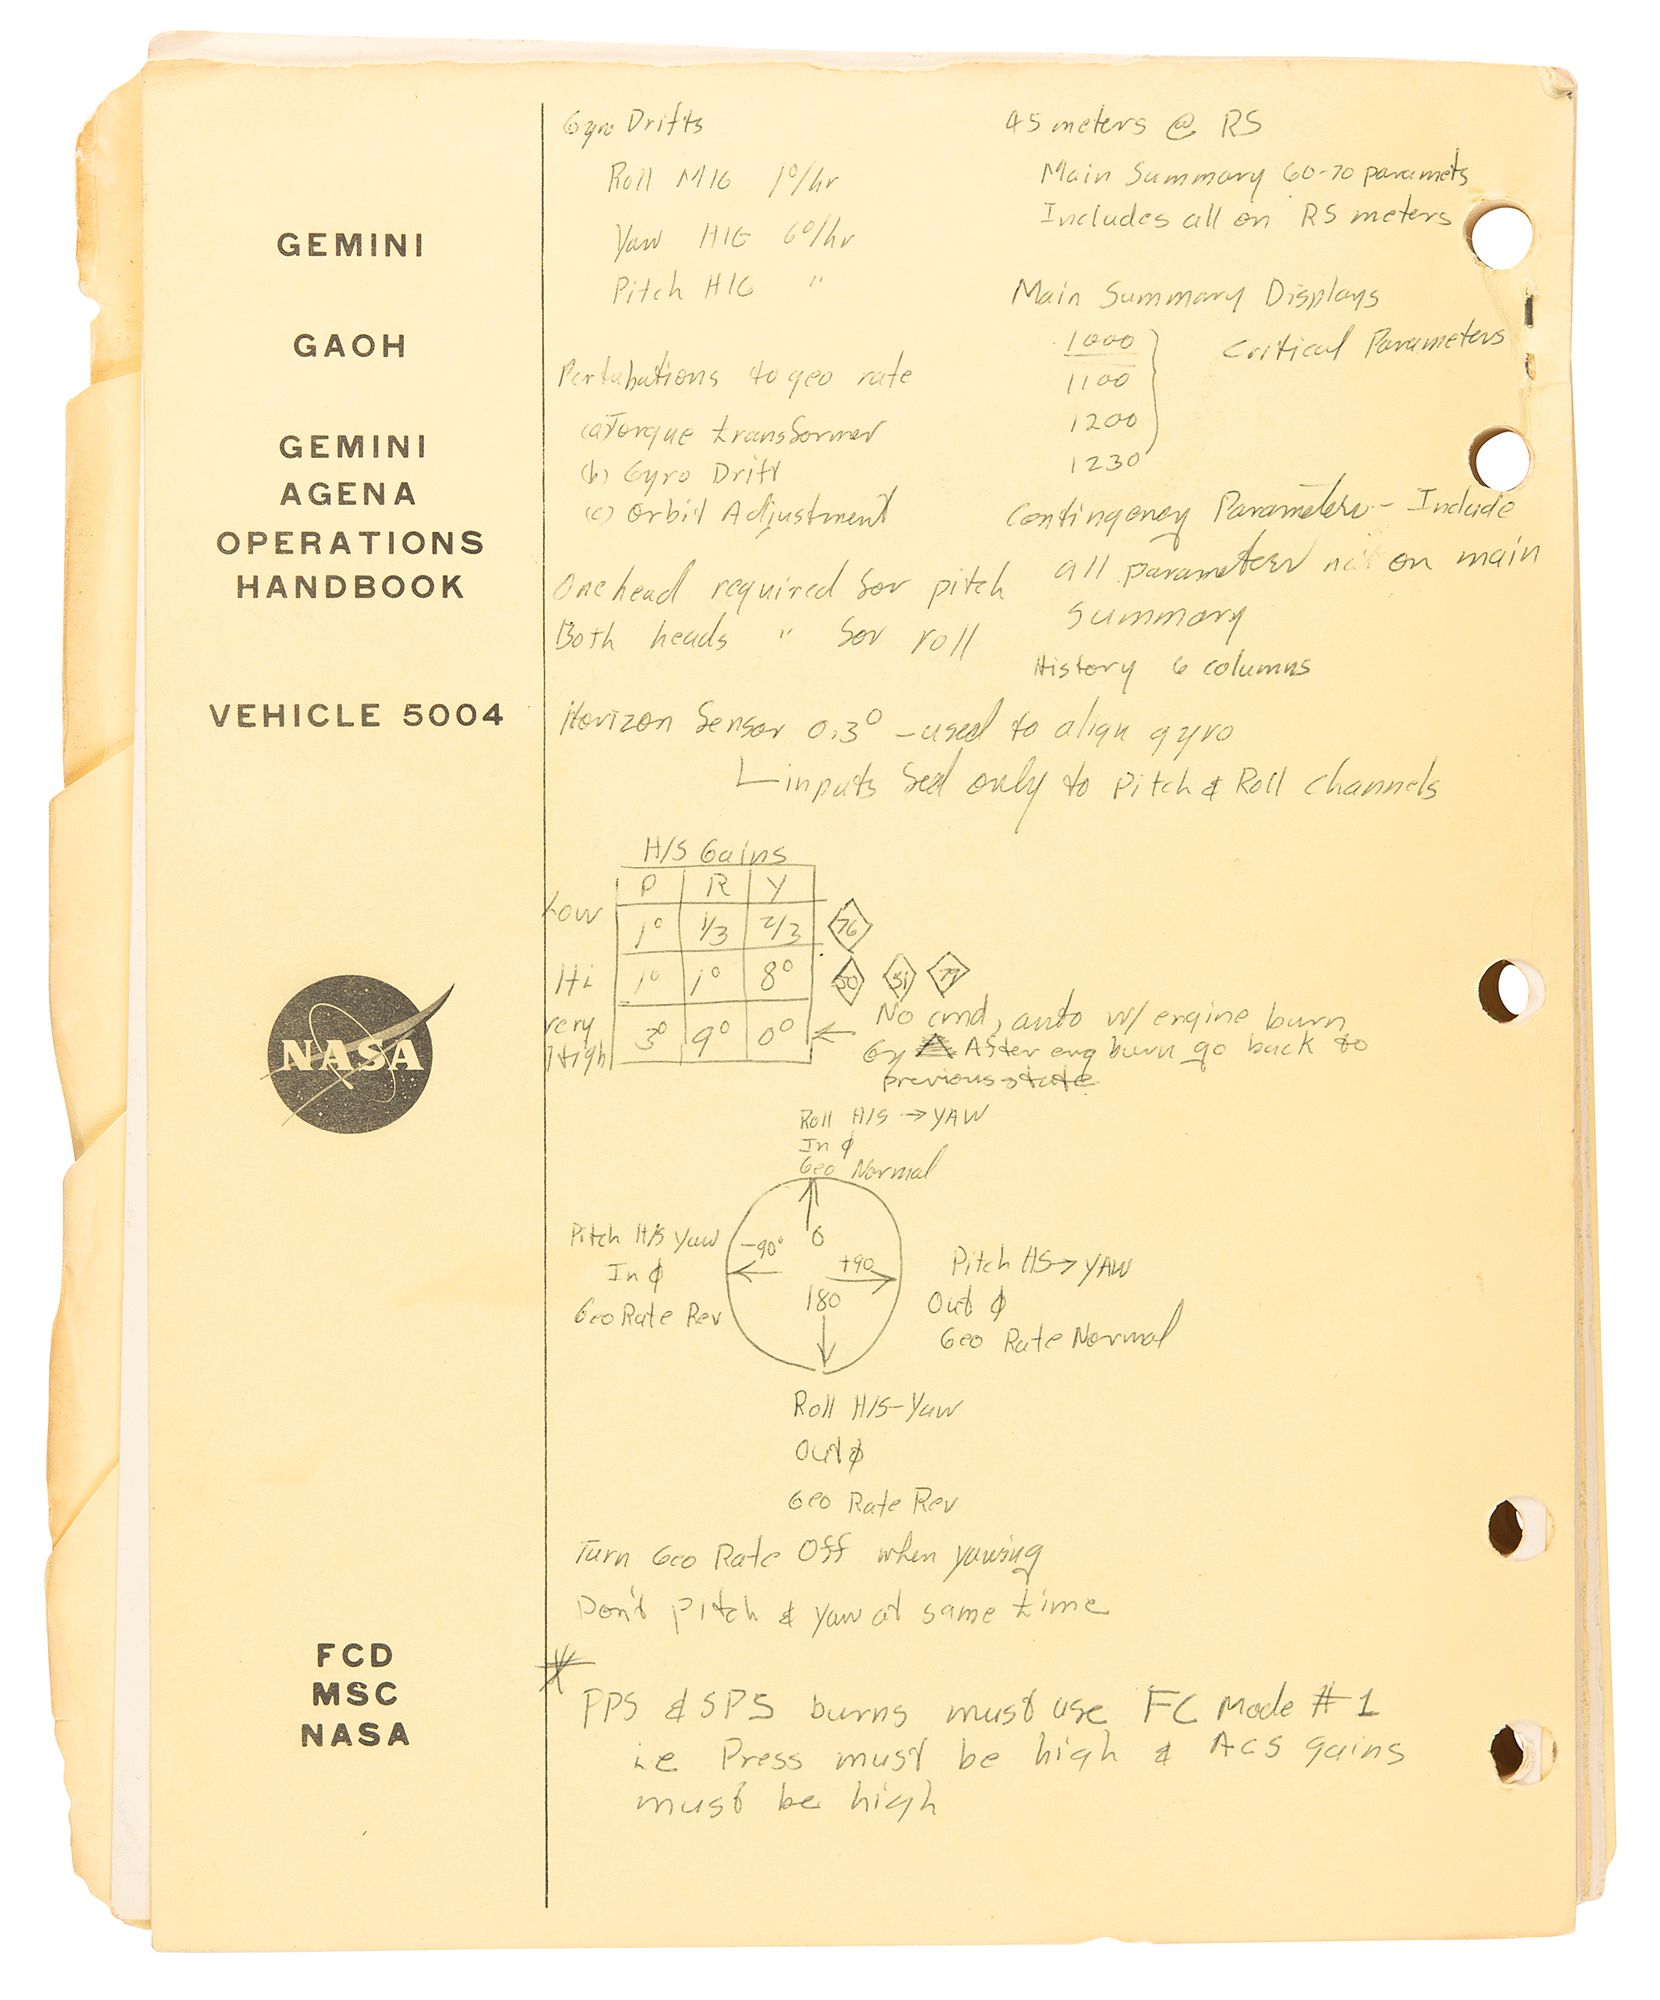 GEMINI
GAOH
GEMINI
AGENA
OPERATIONS
HANDBOOK
VEHICLE 5004
NASA
FCD
MSC
NASA
Gyro Drifts
Roll MIG 1°/hr
Yaw HIG 6°/hr
Pitch HIG "
Pertubations to geo rate
(a) Torque transformer
(b) Gyro Drift
(c) Orbit Adjustment
One head required for pitch
Both heads " for roll
45 meters @ RS
Main Summary 60-70 paramets
Includes all on RS meters
Main Summary Displays
1000
1100
1200
1230
Critical Parameters
Contingency Parameters - Include
all parameters not on main
summary
History 6 columns
Horizon Sensor 0.3° - used to align gyro
inputs fed only to Pitch & Roll channels
H/S Gains
P R Y
Low 1° 1/3 2/3 76
Hi 1° 1° 8° 50 51 79
Very High 3° 9° 0° ← No cmd, auto w/ engine burn
After eng burn go back to
previous state
Roll H/S → YAW
In ϕ
Geo Normal
Pitch H/S Yaw
In ϕ
Geo Rate Rev
-90°
0
+90
180
Pitch HS → YAW
Out ϕ
Geo Rate Normal
Roll H/S - Yaw
Out ϕ
Geo Rate Rev
Turn Geo Rate Off when yawing
Don't pitch & yaw at same time
* PPS & SPS burns must use FC Mode #1
i.e Press must be high & ACS gains
must be high